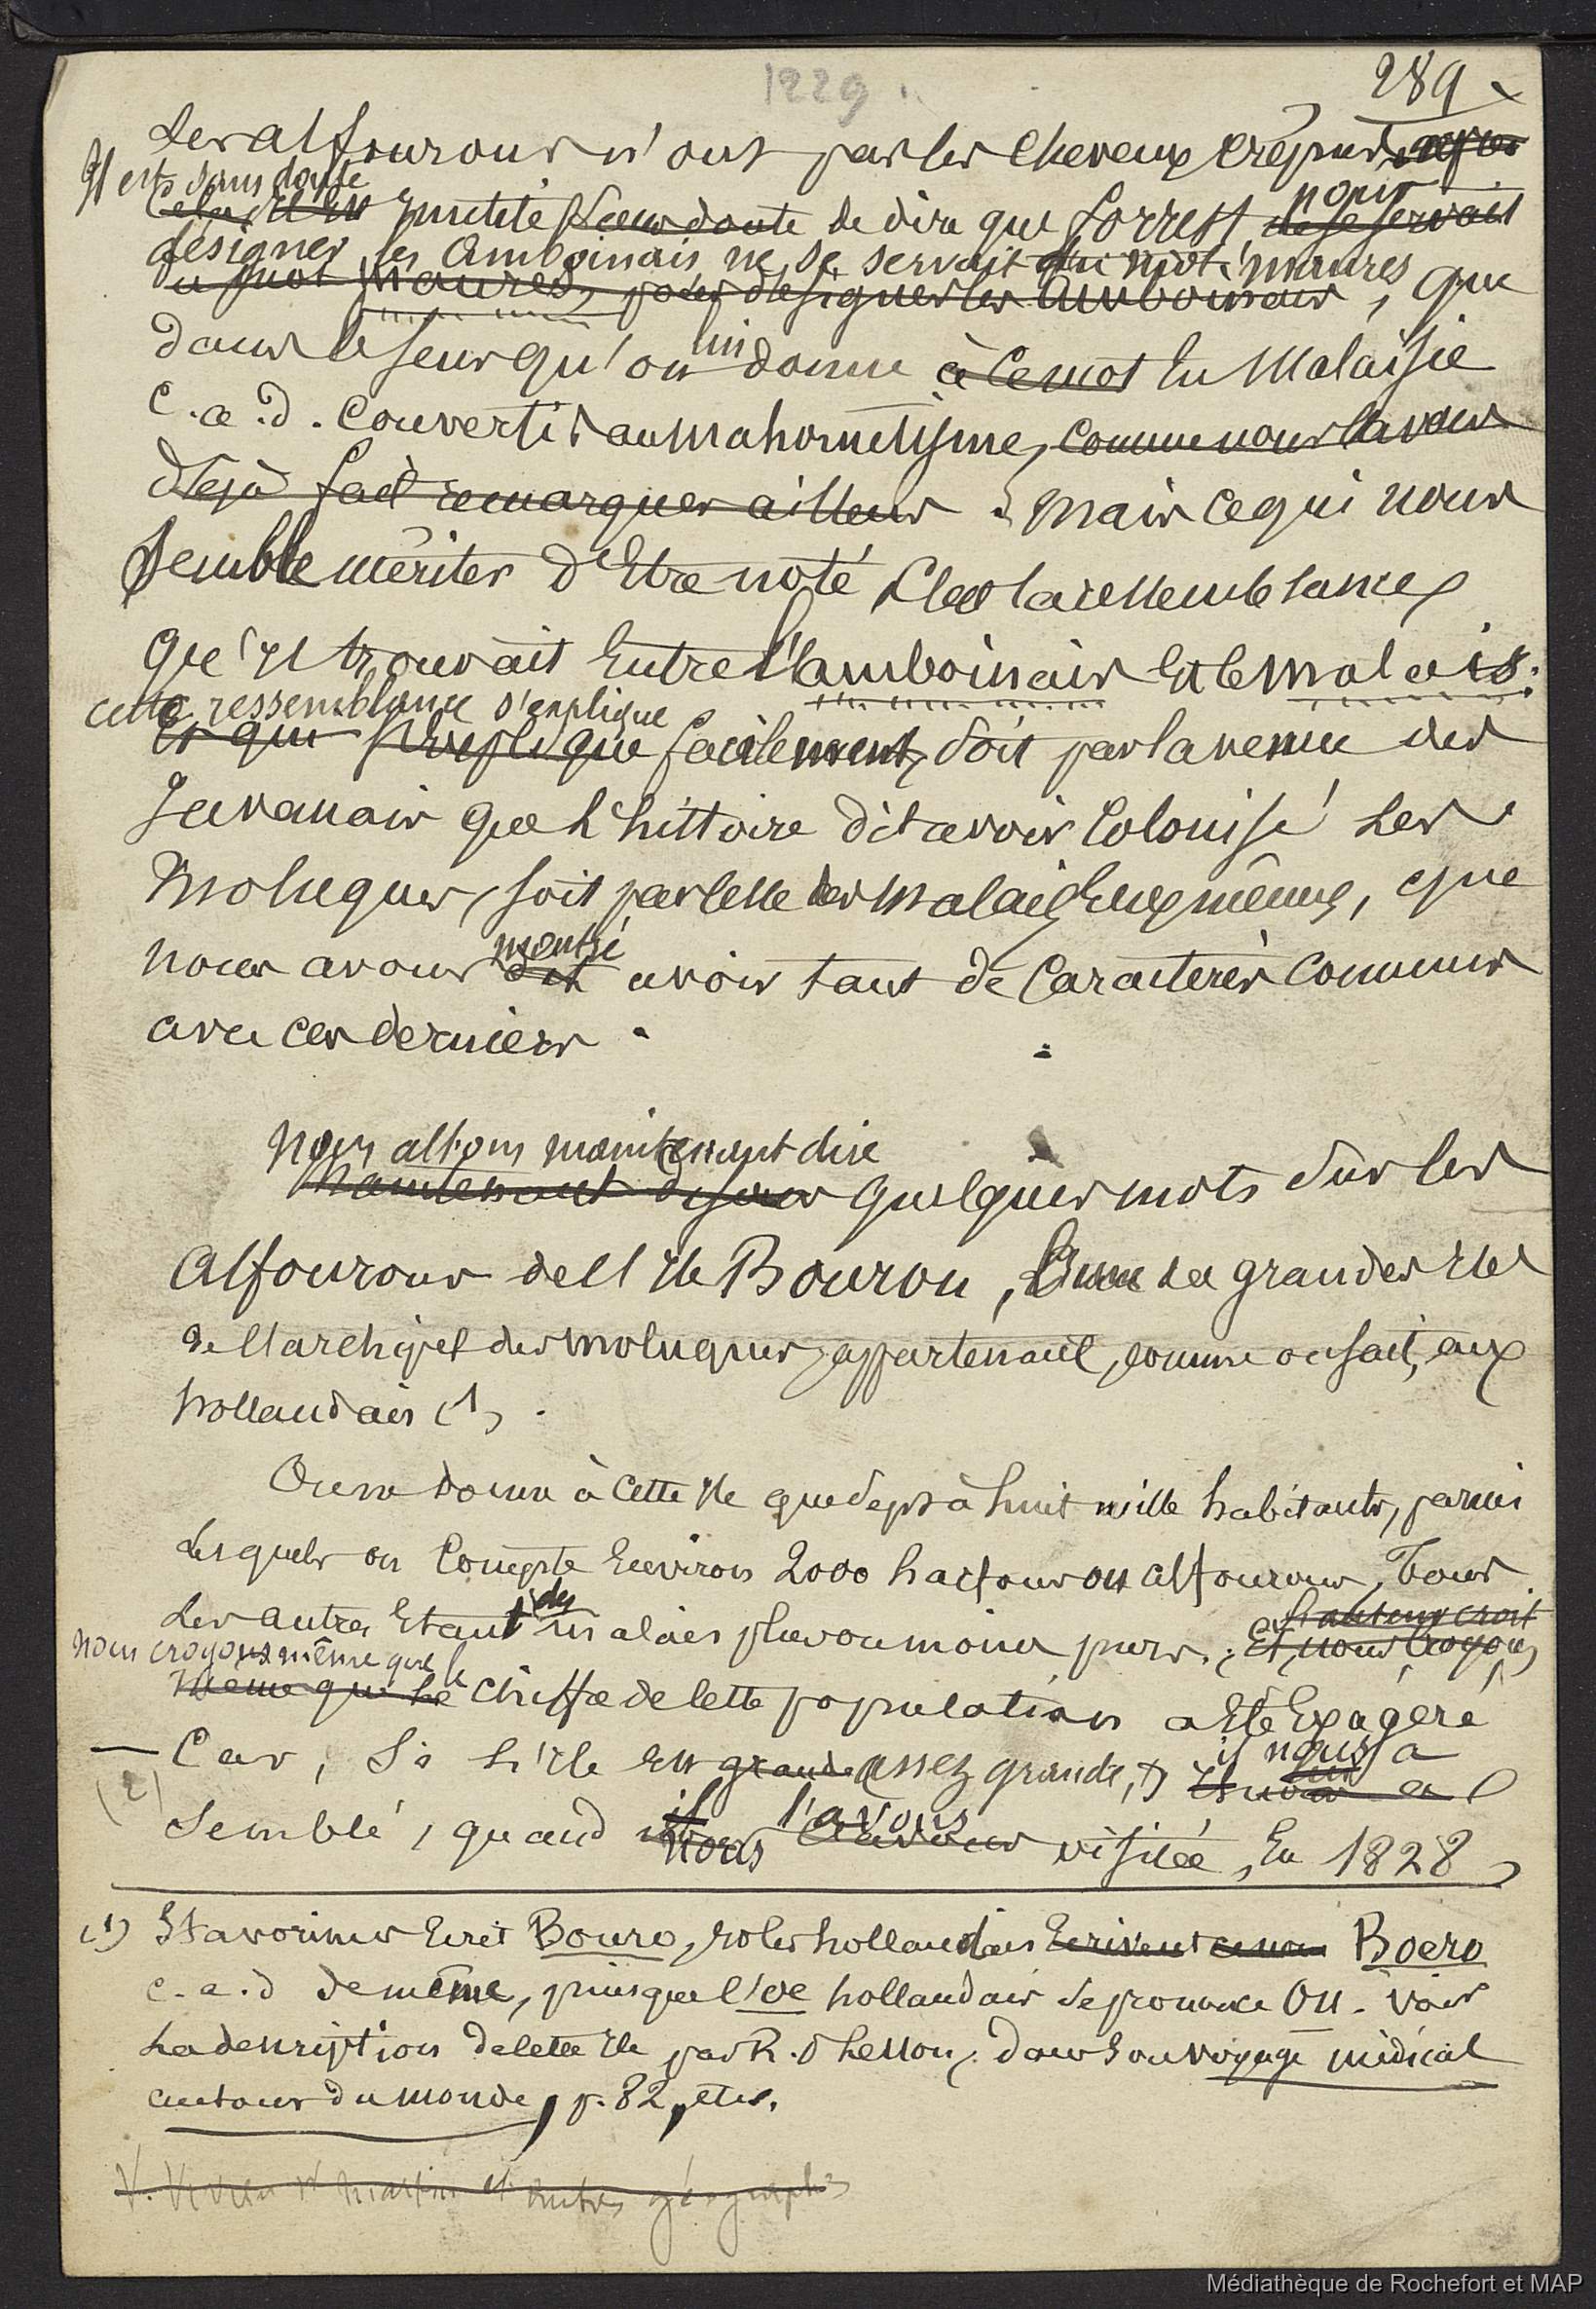 1229.
289
Les alfourous n'ont pas les cheveux crépus
Il est sans doute
Cela, il est inutile sans doute de dire que Forrest, ne se servait pour
désigner les Amboinais ne se servait du mot maures
du mot maures, pour désigner les Amboinais, que
dans le sens qu'on lui donne à ce mot en Malaisie
c.a.d. convertis au mahométisme, comme nous l'avons
déjà fait remarquer ailleurs. Mais ce qui nous
semble mériter d'être noté c'est la ressemblance
qu'il trouvait entre l'amboinais et le malais.
cette ressemblance s'explique
Et qui s'explique facilement, soit par la venue des
Javanais que l'histoire dit avoir colonisé les
Moluques, soit par celle des malais eux mêmes, que
montré
nous avons dit avoir tant de caractères communs
avec ces derniers.
Nous allons maintenant dire
Maintenant disons quelques mots sur les
alfourous de l'Ile Bourou, l'une des grandes iles
de l'archipel des moluques, appartenant, comme on sait, aux
hollandais (1).
On ne donne à cette ile que sept à huit mille habitants, parmi
lesquels on compte environ 2000 harfours ou alfourous, tous
des l'auteur croit
les autres étant malais plus ou moins purs.; Et, nous croyons
nous croyons même que le
même que le chiffre de cette population a été exagéré
Car, si l'ile est grande assez grande, il nous a
(2)
semblé, quand nous l'avons visitée, en 1828,
(1) Stavorinus écrit Bouro, et les hollandais écrivent ce nom Boero
c.a.d de même, puisque l'oe hollandais se prononce ou. Voir
la description de cette ile par R.P Lesson, dans son voyage médical
autour du monde, p. 82, etc.
V. Vivien St Martin et autres géographes
Médiathèque de Rochefort et MAP